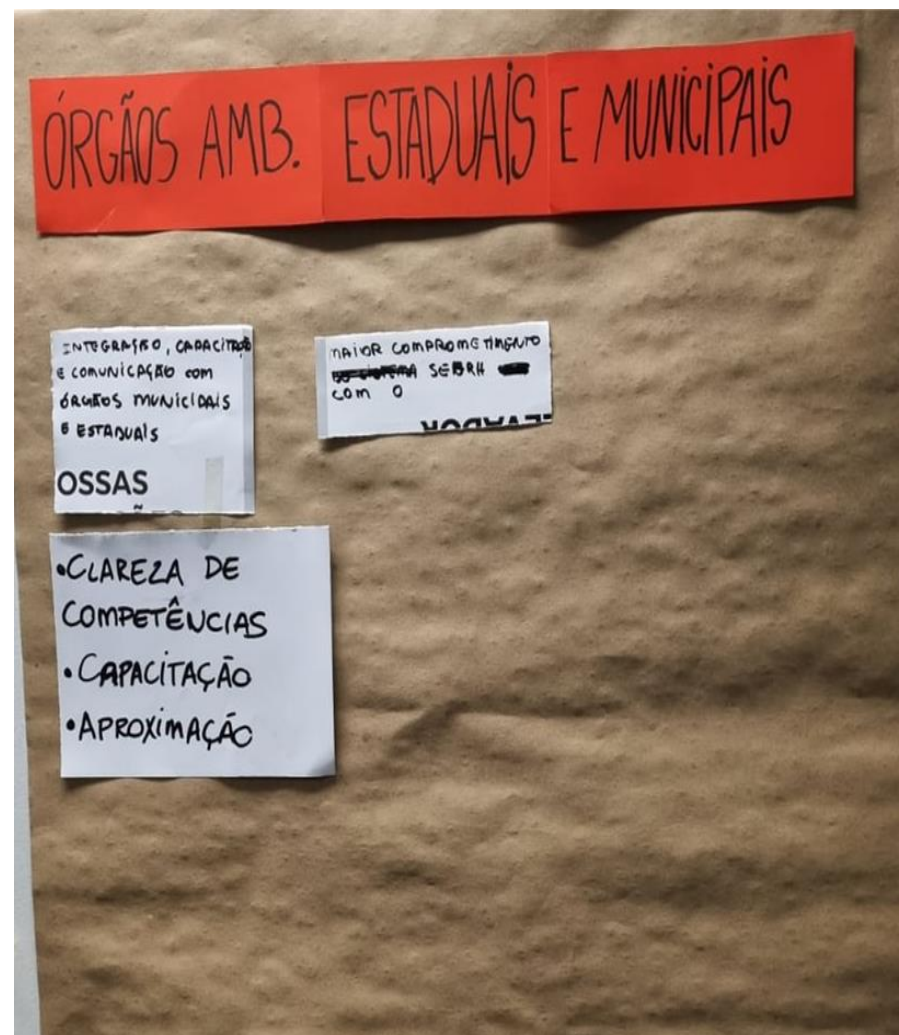 ÓRGÃOS AMB. ESTADUAIS E MUNICIPAIS
INTEGRAÇÃO, CAPACITAÇÃO
E COMUNICAÇÃO com
ÓRGÃOS MUNICIPAIS
E ESTADUAIS
OSSAS
MAIOR COMPROMETIMENTO
SEGRH
COM O
•CLAREZA DE
COMPETÊNCIAS
•CAPACITAÇÃO
•APROXIMAÇÃO